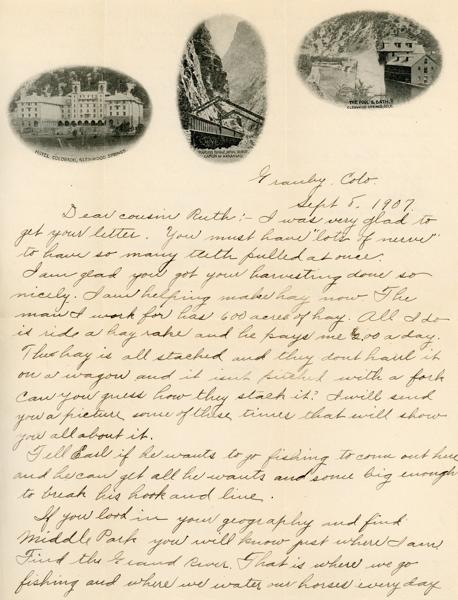 HOTEL COLORADO, GLENWOOD SPRINGS.
CANON OF ARKANSAS
THE POOL & BATH,
GLENWOOD SPRINGS, COLO.
Granby, Colo.
Sept 8, 1907.
Dear cousin Ruth:- I was very glad to
get your letter. You must have "lots of nerve"
to have so many teeth pulled at once.
I am glad you got your harvesting done so
nicely. I am helping make hay now The
man I work for has 600 acres of hay. All I do
is ride a hay rake and he pays me 2.00 a day.
The hay is all stacked and they dont haul it
on a wagon and it isnt pitched with a fork
Can you guess how they stack it? I will send
you a picture some of these times that will show
you all about it.
Tell Earl if he wants to go fishing to come out here
and he can get all he wants and some big enough
to break his hook and line.
If you look in your geography and find
Middle Park you will know just where I am
Find the Grand River. That is where we go
fishing and where we water our horses every day